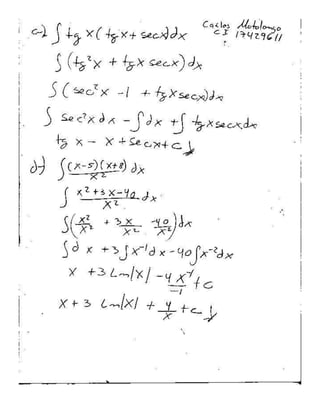 Carlos Matalongo
CI 17429611
c-) ∫ tg x (tgx + secx)dx
∫ (tg²x + tgx secx) dx
∫ (sec²x -1 + tgxsecx)dx
∫ sec²x dx - ∫dx + ∫ tgxsecx.dx
tg x - x + secx + c
d-) ∫ (x-5)(x+8)/x² dx
∫ x²+3x-40/x² dx
∫(x²/x² + 3x/x² -40/x²)dx
∫dx +3∫x⁻¹dx -40∫x⁻²dx
x +3 Ln|x| -4 x⁻¹/-1 + c
x + 3 Ln|x| + 4/x + c